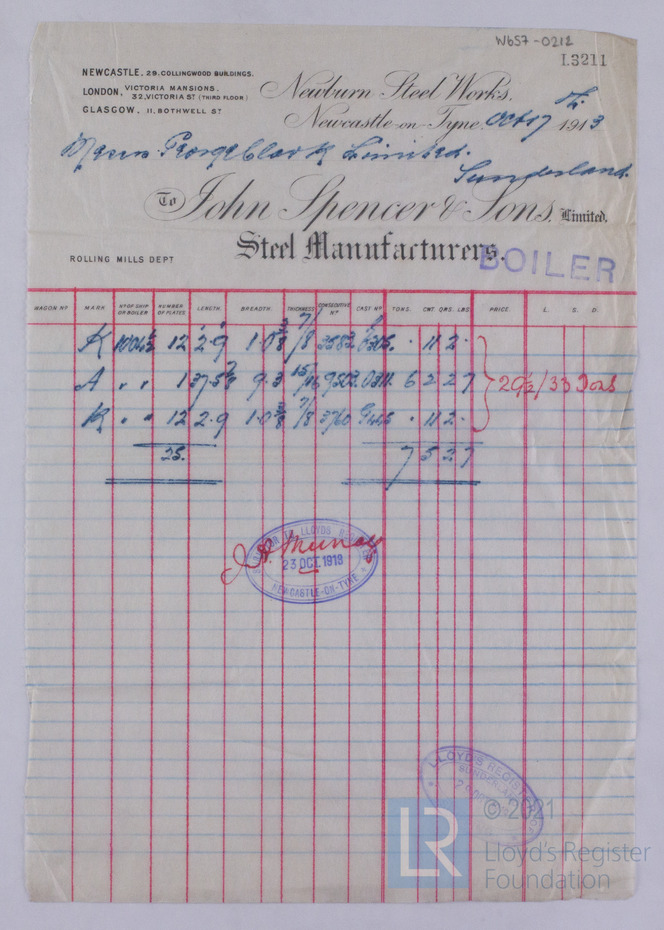 W657-0212
L3211
NEWCASTLE, 29, COLLINGWOOD BUILDINGS.
LONDON, VICTORIA MANSIONS, 32, VICTORIA ST (THIRD FLOOR)
GLASGOW, 11, BOTHWELL ST
Newburn Steel Works,
Newcastle-on-Tyne, Oct 17 1913
Messrs George Clark Limited.
Sunderland.
To John Spencer & Sons, Limited.
Steel Manufacturers.
BOILER
ROLLING MILLS DEPT
WAGON No MARK No OF SHIP OR BOILER NUMBER OF PLATES. LENGTH. BREADTH. THICKNESS CONSECUTIVE No CAST No TONS. CWT. QRS. LBS. PRICE. L. S. D.
K 12 2.9 1.0 7/8 . 11 2 .
A " " 1 9.3 6 2 2 7
K " " 12 2.9 1.0 7/8 3760 . 11 2 .
29½/33 Tons
25. 7 5 2 7
SURVEYOR TO LLOYDS REGISTER
J. A. Murray
23 OCT 1913
NEWCASTLE-ON-TYNE
LLOYD'S REGISTER
SUNDERLAND
© 2021
LR
Lloyd's Register
Foundation